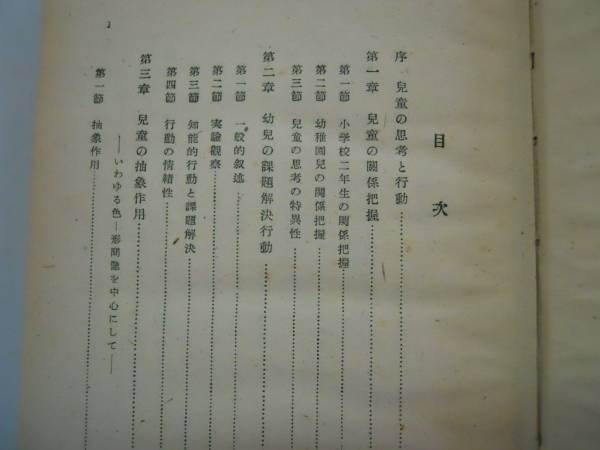 目次
序 兒童の思考と行動
第一章 兒童の關係把握
第一節 小学校二年生の関係把握
第二節 幼稚園兒の関係把握
第三節 兒童の思考の特異性
第二章 幼兒の課題解決行動
第一節 一般的叙述
第二節 実驗観察
第三節 知能的行動と課題解決
第四節 行動の情緒性
第三章 兒童の抽象作用
——いわゆる色—形問題を中心にして——
第一節 抽象作用